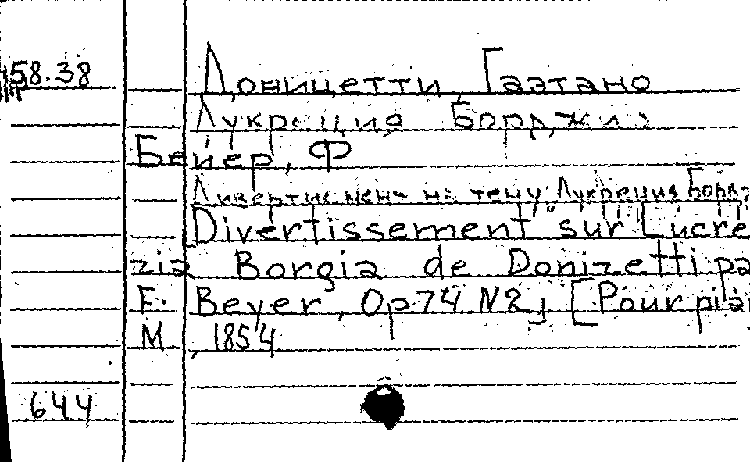 58.38 Доницетти, Гаэтано
Лукреция Борджиа
Бейер, Ф
Дивертисмент на тему Лукреция Бордж
Divertissement sur Lucre
zia Borgia de Donizetti pa
F. Beyer, Op 74 N2, [Pour pia
M, 1854
644